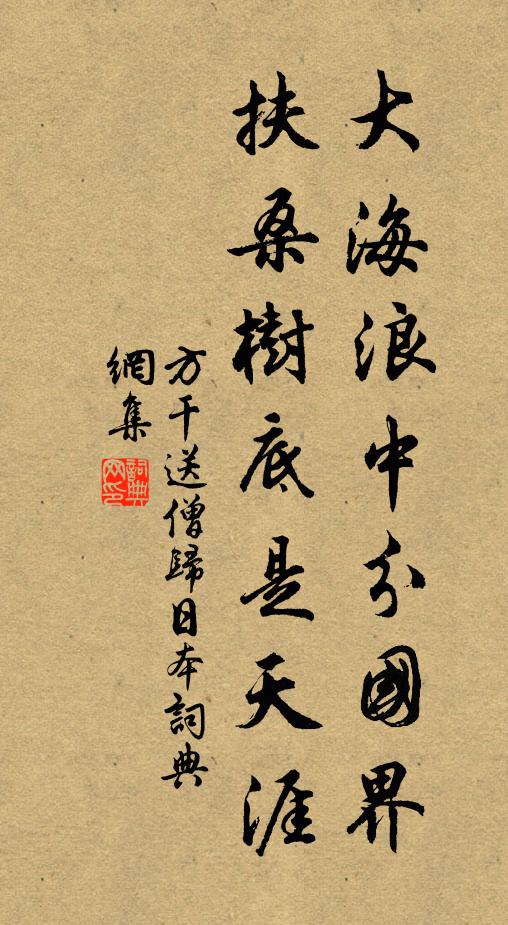 大海浪中分國界
扶桑樹底是天涯
方干送僧歸日本詞典
網集
詞典
网印